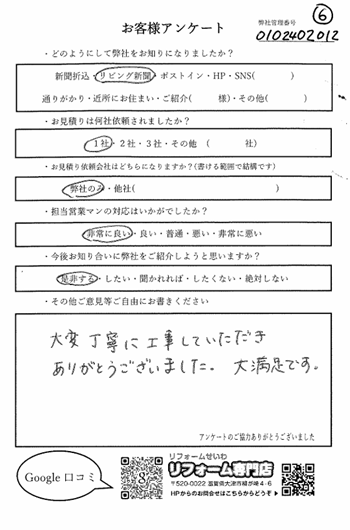 ⑥
お客様アンケート
弊社管理番号
0102402012
・どのようにして弊社をお知りになりましたか？
新聞折込・リビング新聞・ポストイン・HP・SNS(　　　)
通りがかり・近所にお住まい・ご紹介(　　　様)・その他(　　　)
・お見積りは何社依頼されましたか？
1社・2社・3社・その他　(　　　社)
・お見積り依頼会社はどちらになりますか？(書ける範囲で結構です)
弊社のみ・他社(　　　)
・担当営業マンの対応はいかがでしたか？
非常に良い・良い・普通・悪い・非常に悪い
・今後お知り合いに弊社をご紹介しようと思いますか？
是非する・したい・聞かれれば・したくない・絶対しない
・その他ご意見等ご自由にお書きください
大変丁寧に工事していただき
ありがとうございました。大満足です。
アンケートのご協力ありがとうございました
Google 口コミ
リフォームせいわ
リフォーム専門店
〒520-0022 滋賀県大津市柳が崎4-6
HPからのお問合せはこちらからどうぞ